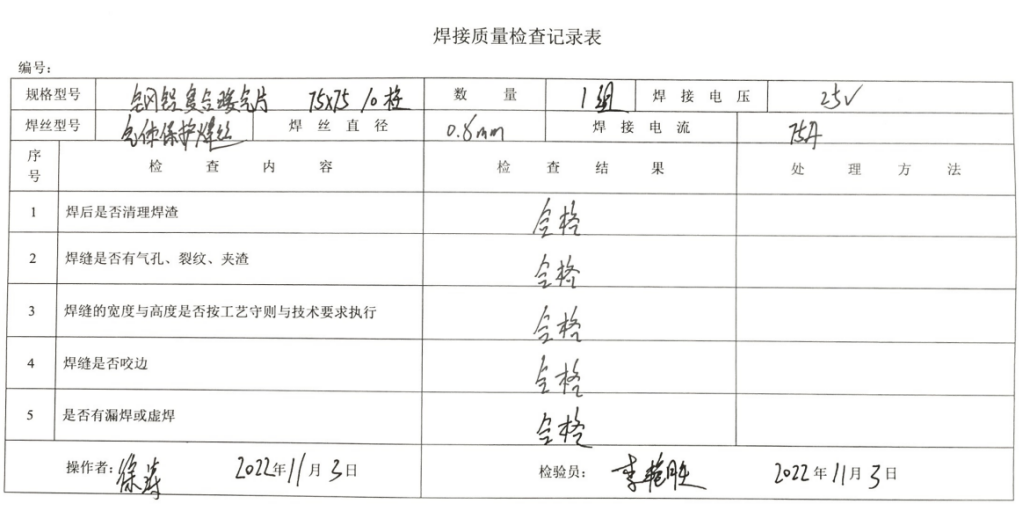 焊接质量检查记录表
编号:
规格型号 钢铝复合暖气片 75x75 10柱 数量 1组 焊接电压 25V
焊丝型号 气体保护焊丝 焊丝直径 0.8mm 焊接电流 75A
序号 检查内容 检查结果 处理方法
1 焊后是否清理焊渣 合格
2 焊缝是否有气孔、裂纹、夹渣 合格
3 焊缝的宽度与高度是否按工艺守则与技术要求执行 合格
4 焊缝是否咬边 合格
5 是否有漏焊或虚焊 合格
操作者: 徐涛 2022年11月3日 检验员: 李艳胜 2022年11月3日